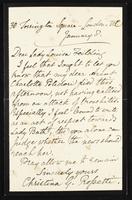 30 Torrington Square, London. W.C.
January 8.
Dear Lady Louisa Feilding
I feel that I ought to let you
know that my dear Aunt
Charlotte Polidori died this
afternoon, not having rallied
from an attack of bronchitis.
Especially I feel bound to write
in respect towards
Lady Bath, tho' you alone can
judge whether the news should
reach her.
Pray allow me to remain
Sincerely yours
Christina G. Rossetti